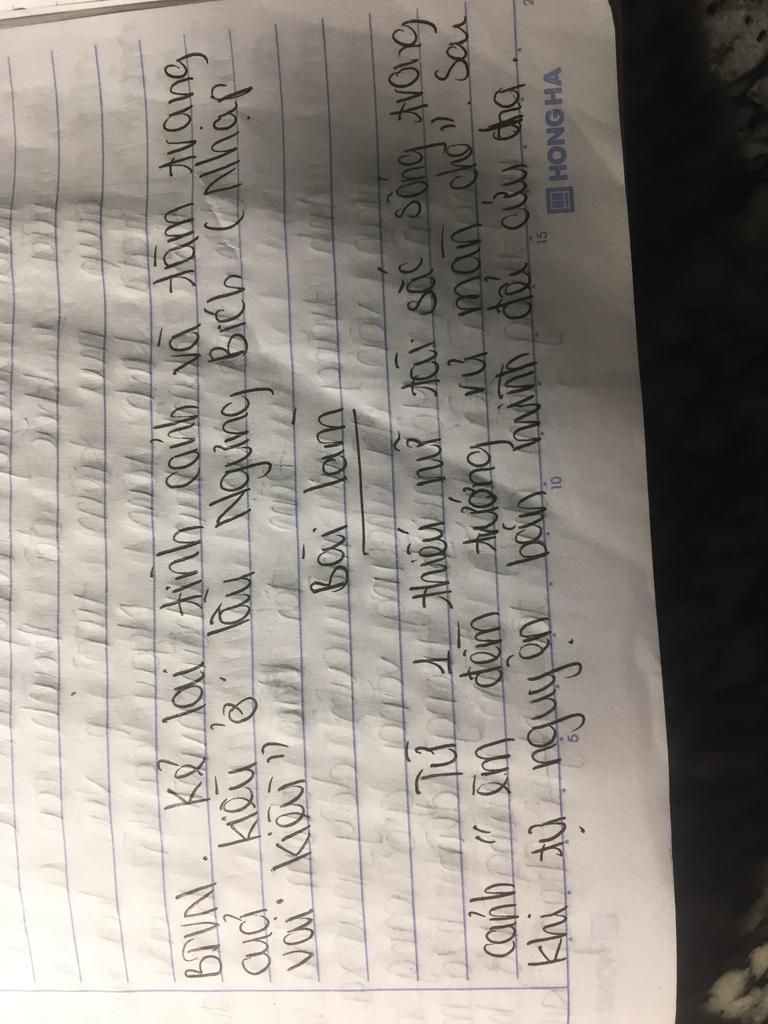 BTVN. Kể lại tình cảnh và tâm trạng
của Kiều ở lầu Ngưng Bích (Nhập
vai Kiều"
Bài làm
Từ 1 thiếu nữ tài sắc sống trong
cảnh " êm đềm trướng rủ màn che". Sau
khi tự nguyện bán mình để cứu cha.
5 10 15
HONG HA